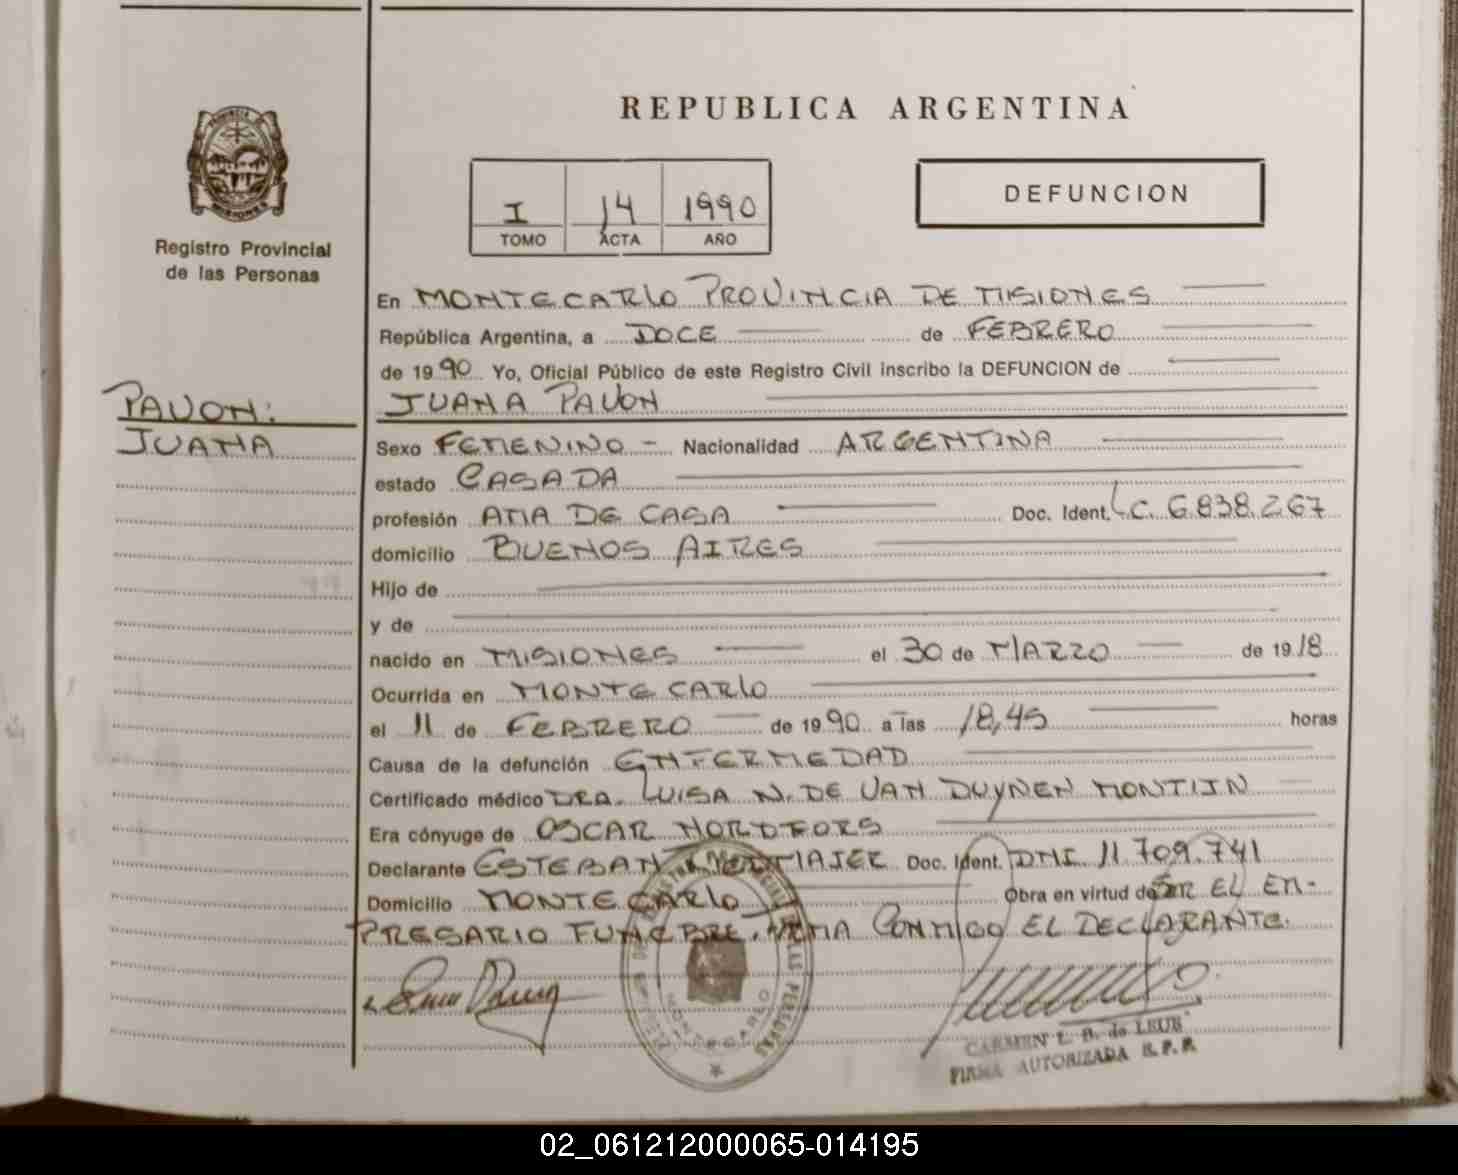 REPUBLICA ARGENTINA
PROVINCIA DE
MISIONES
Registro Provincial
de las Personas
I 14 1990
TOMO ACTA AÑO
DEFUNCION
En MONTECARLO PROVINCIA DE MISIONES
República Argentina, a DOCE de FEBRERO
de 1990 Yo, Oficial Público de este Registro Civil inscribo la DEFUNCION de
PAVON:
JUANA
JUANA PAVON
Sexo FEMENINO - Nacionalidad ARGENTINA
estado CASADA
profesión AMA DE CASA Doc. Ident. L.C. 6.838.267
domicilio BUENOS AIRES
Hijo de
y de
nacido en MISIONES el 30 de MARZO de 1918
Ocurrida en MONTECARLO
el 11 de FEBRERO de 1990 a las 18,45 horas
Causa de la defunción ENFERMEDAD
Certificado médico DRA. LUISA N. DE VAN DUYNEN MONTIJN
Era cónyuge de OSCAR NORDFORS
Declarante ESTEBAN Doc. Ident. DNI. 11.709.741
Domicilio MONTECARLO Obra en virtud de SER EL EM-
PRESARIO FUNEBRE. FIRMA CONMIGO EL DECLARANTE.
LAS PERSONAS
MONTECARLO
CARMEN L. B. de LEUB
FIRMA AUTORIZADA R.P.P.
02_061212000065-014195